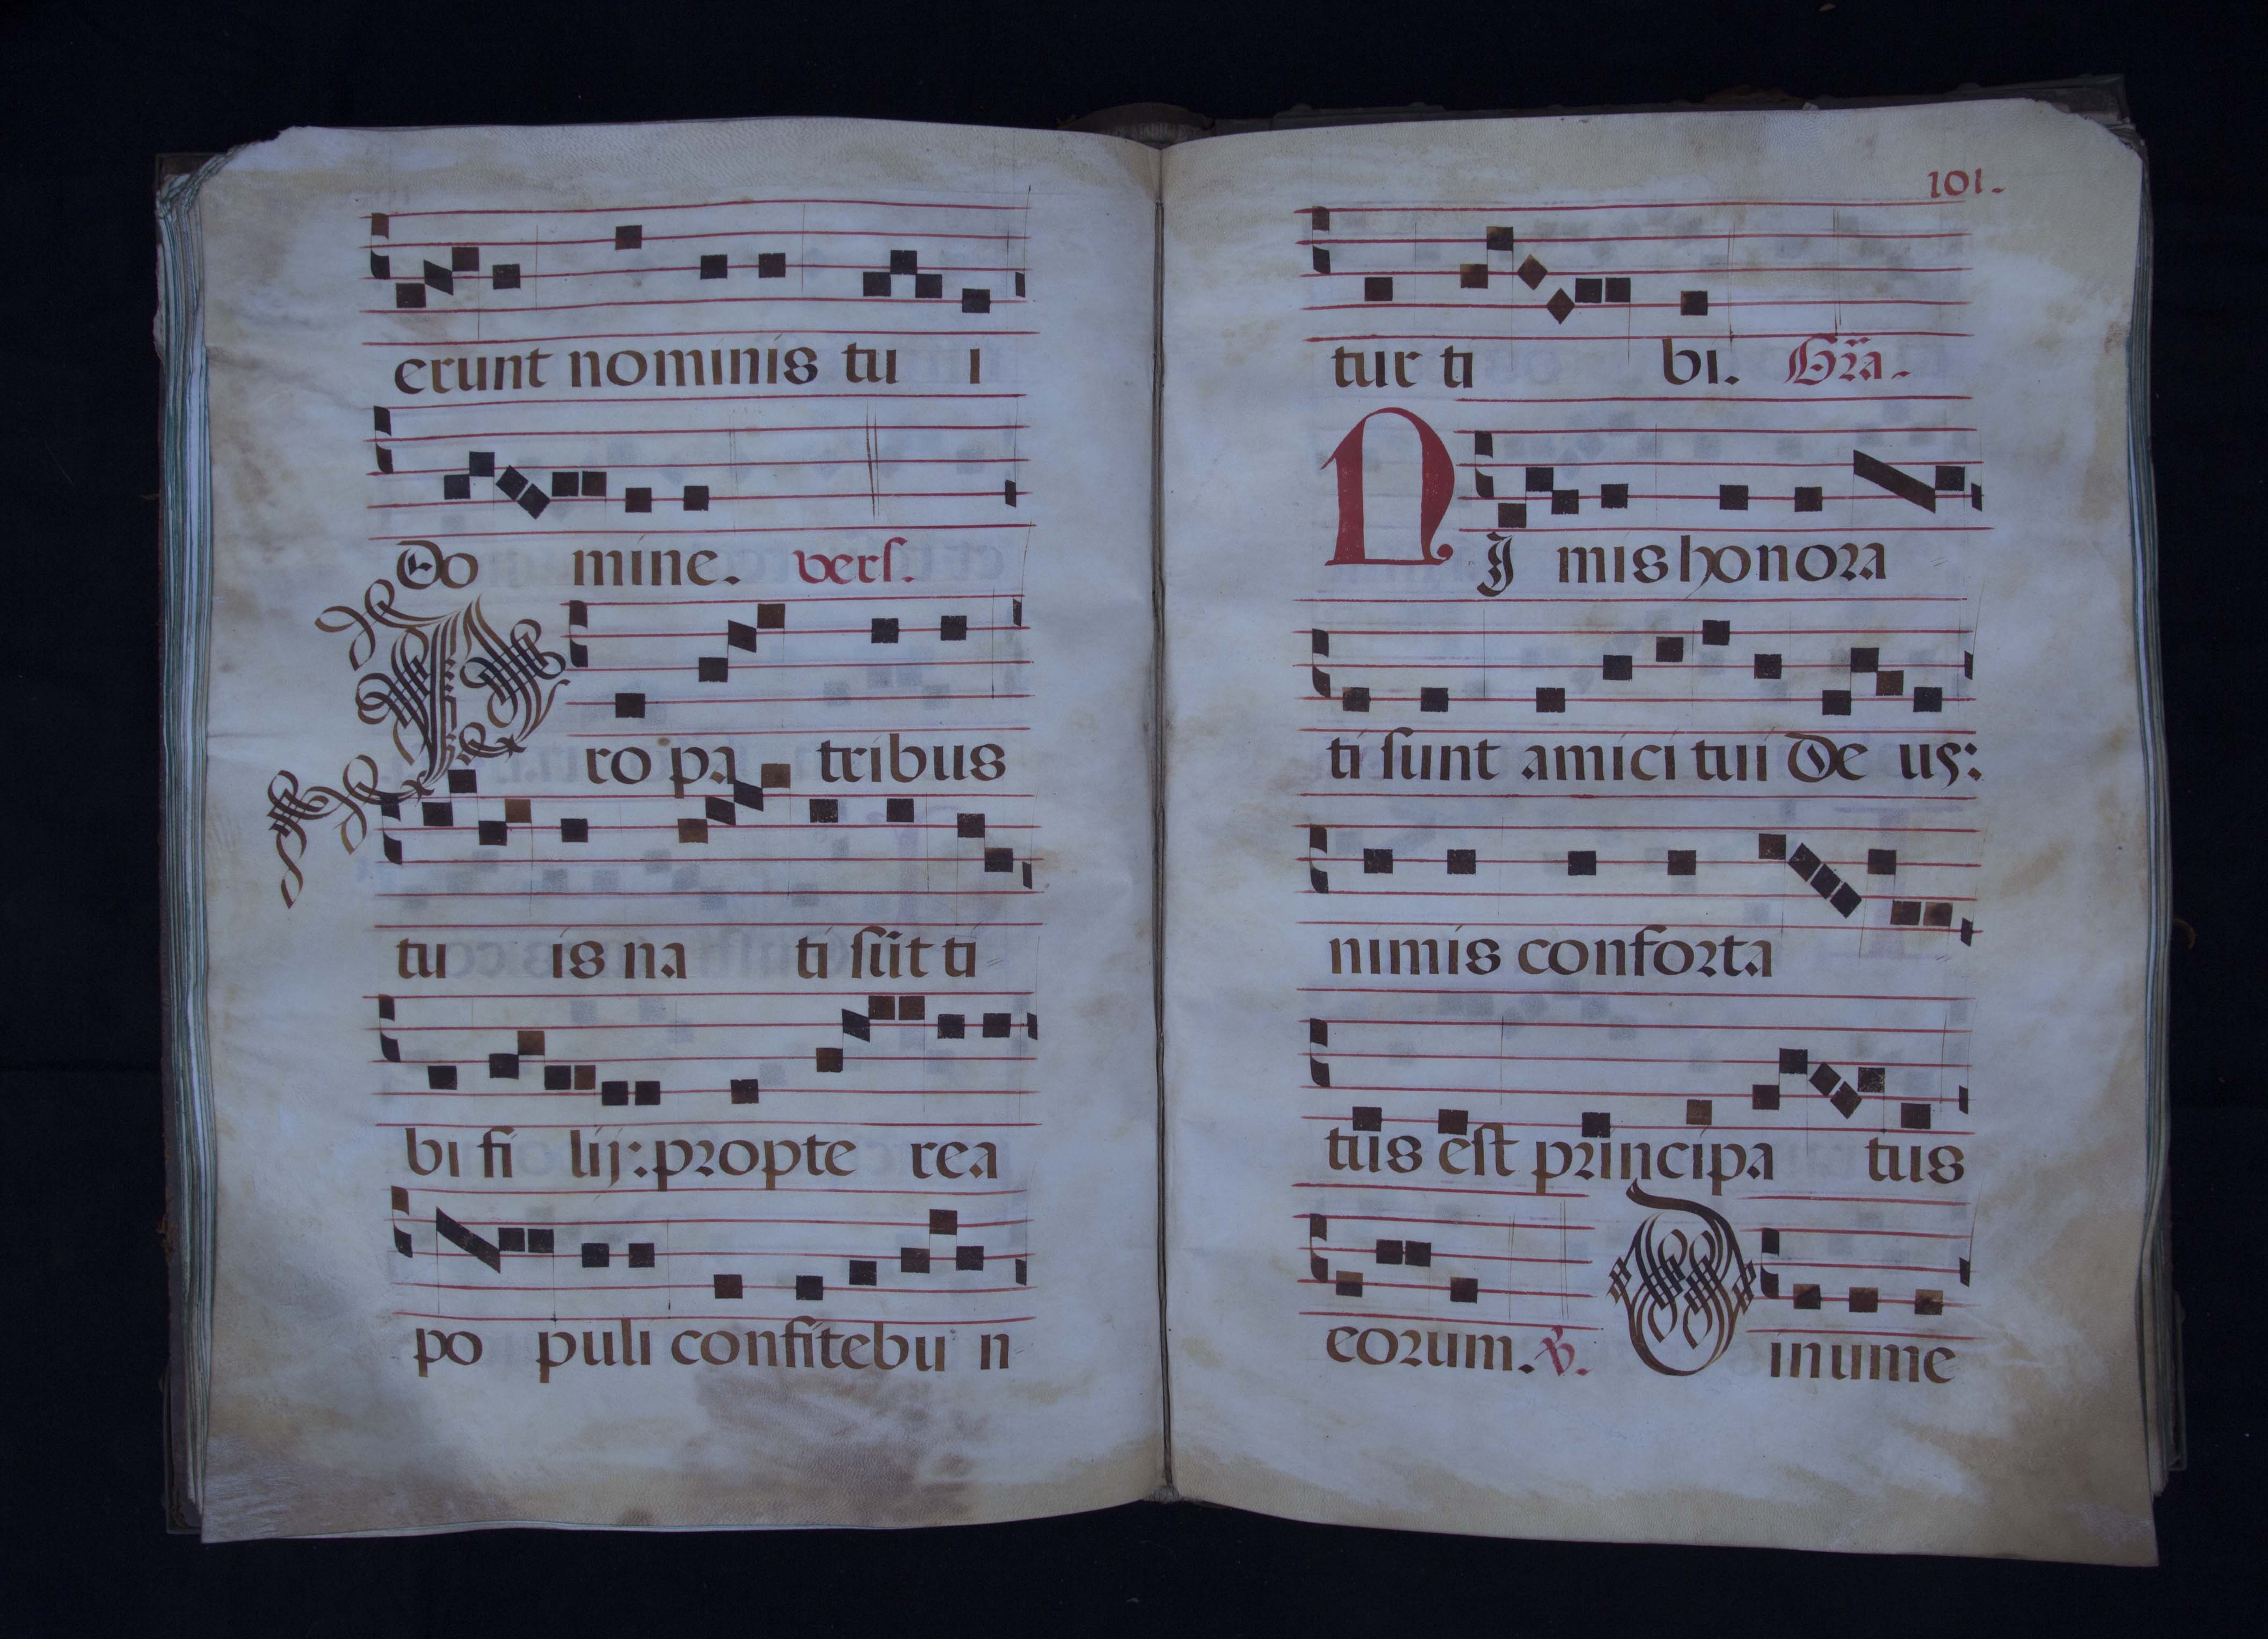 erunt nominis tu i
Do mine. vers.
Pro pa tribus
tu is na ti sūt ti
bi fi lij: propte rea
po puli confitebu n
101.
tur ti bi. Gr̃a.
NI mis honora
ti sunt amici tui De us:
nimis conforta
tus est principa tus
eorum. ꝟ. Dinume